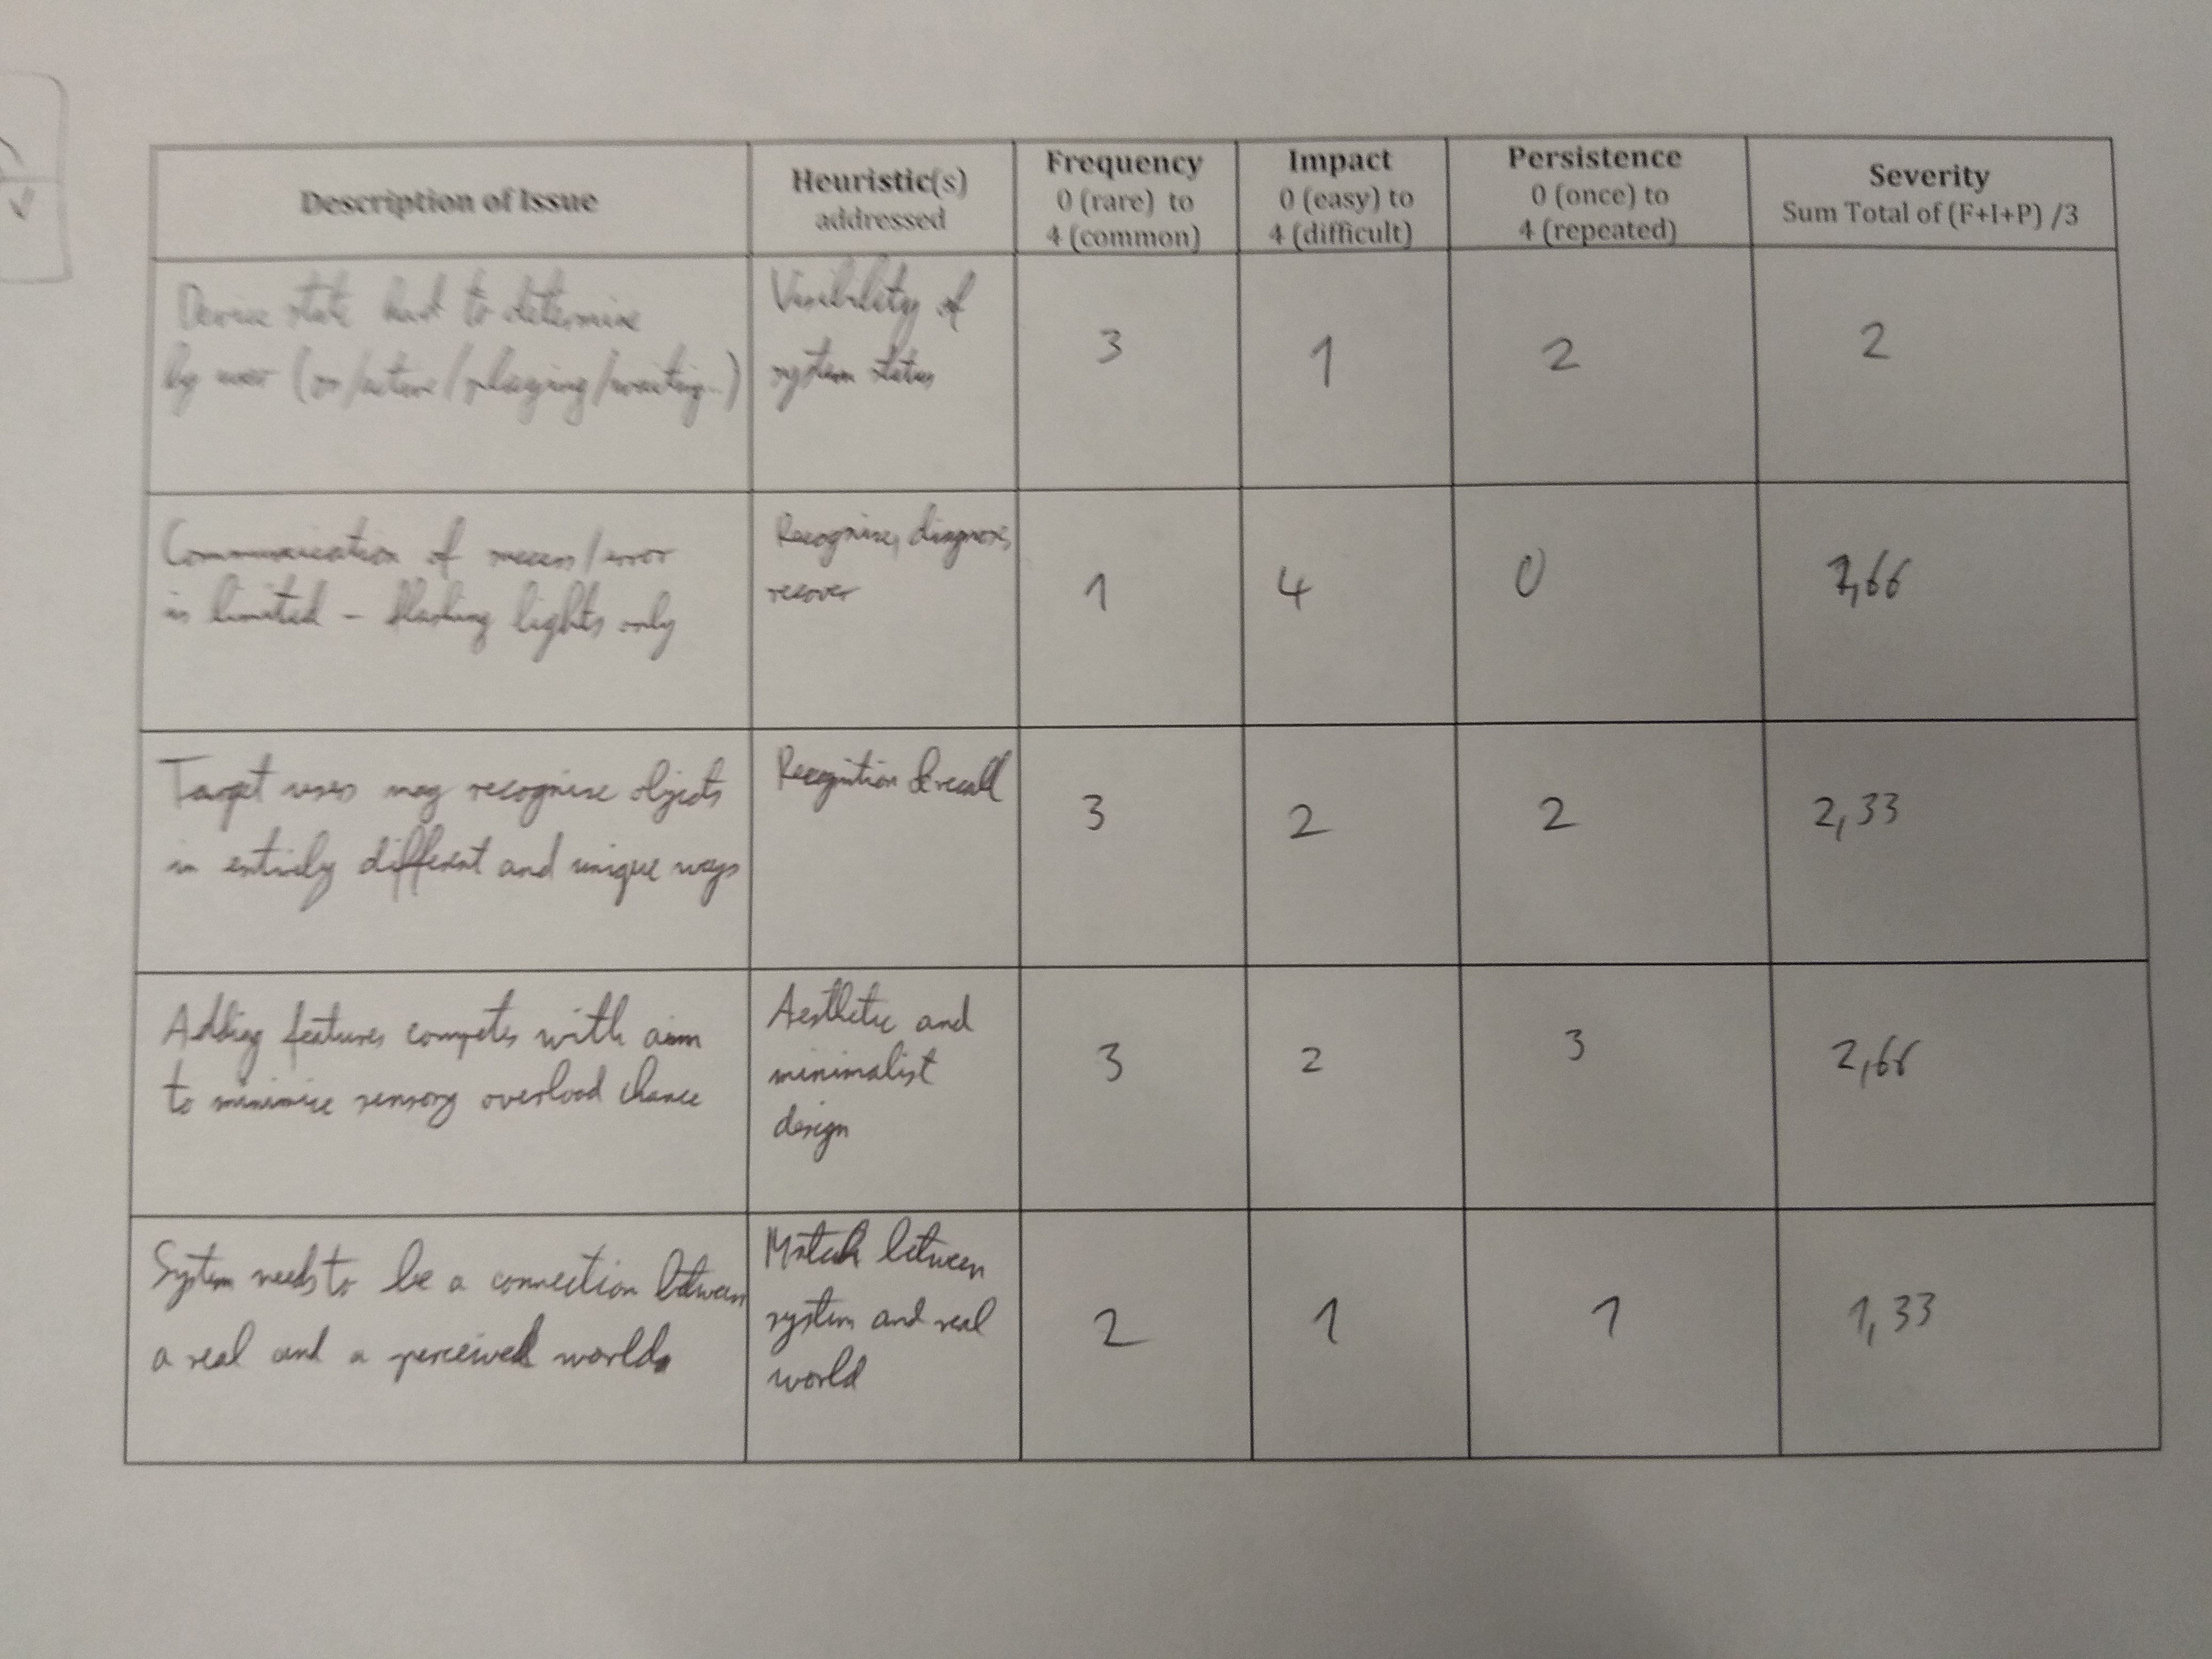 Description of Issue
Heuristic(s)
addressed
Frequency
0 (rare) to
4 (common)
Impact
0 (easy) to
4 (difficult)
Persistence
0 (once) to
4 (repeated)
Severity
Sum Total of (F+I+P) /3
Device state hard to determine
by user (on/active/playing/waiting..)
Visibility of
system status
3
1
2
2
Communication of success/error
is limited - flashing lights only
Recognise, diagnose,
recover
1
4
0
1,66
Target users may recognise objects
in entirely different and unique ways
Recognition & recall
3
2
2
2,33
Adding features competes with aim
to minimise sensory overload chance
Aesthetic and
minimalist
design
3
2
3
2,66
System needs to be a connection between
a real and a perceived world
Match between
system and real
world
2
1
1
1,33